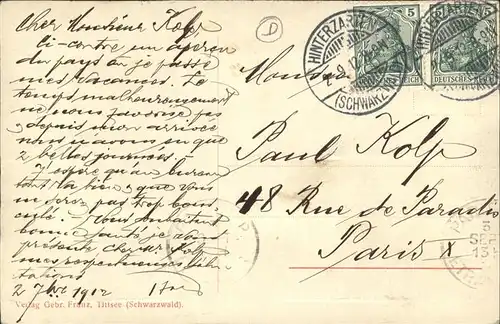 Cher Monsieur Kolp,
Ci-contre un aperçu
du pays où je passe
mes vacances. Le
temps malheureusement
ne nous favorise pas
depuis mon arrivée
nous n'avons eu que
2 belles journées.
J'espère qu'au bureau
tout va bien, que vous
n'êtes pas trop bous-
culé. Vous souhaitant
bonne santé je vous
présente cher Mr Kolp
mes respectueuses salu-
tations
2 7bre 1912
Monsieur
Paul Kolp
48 Rue de Paradis
Paris X
HINTERZARTEN
2.9.12
(SCHWARZW.)
5
DEUTSCHES REICH
Verlag Gebr. Franz, Titisee (Schwarzwald).